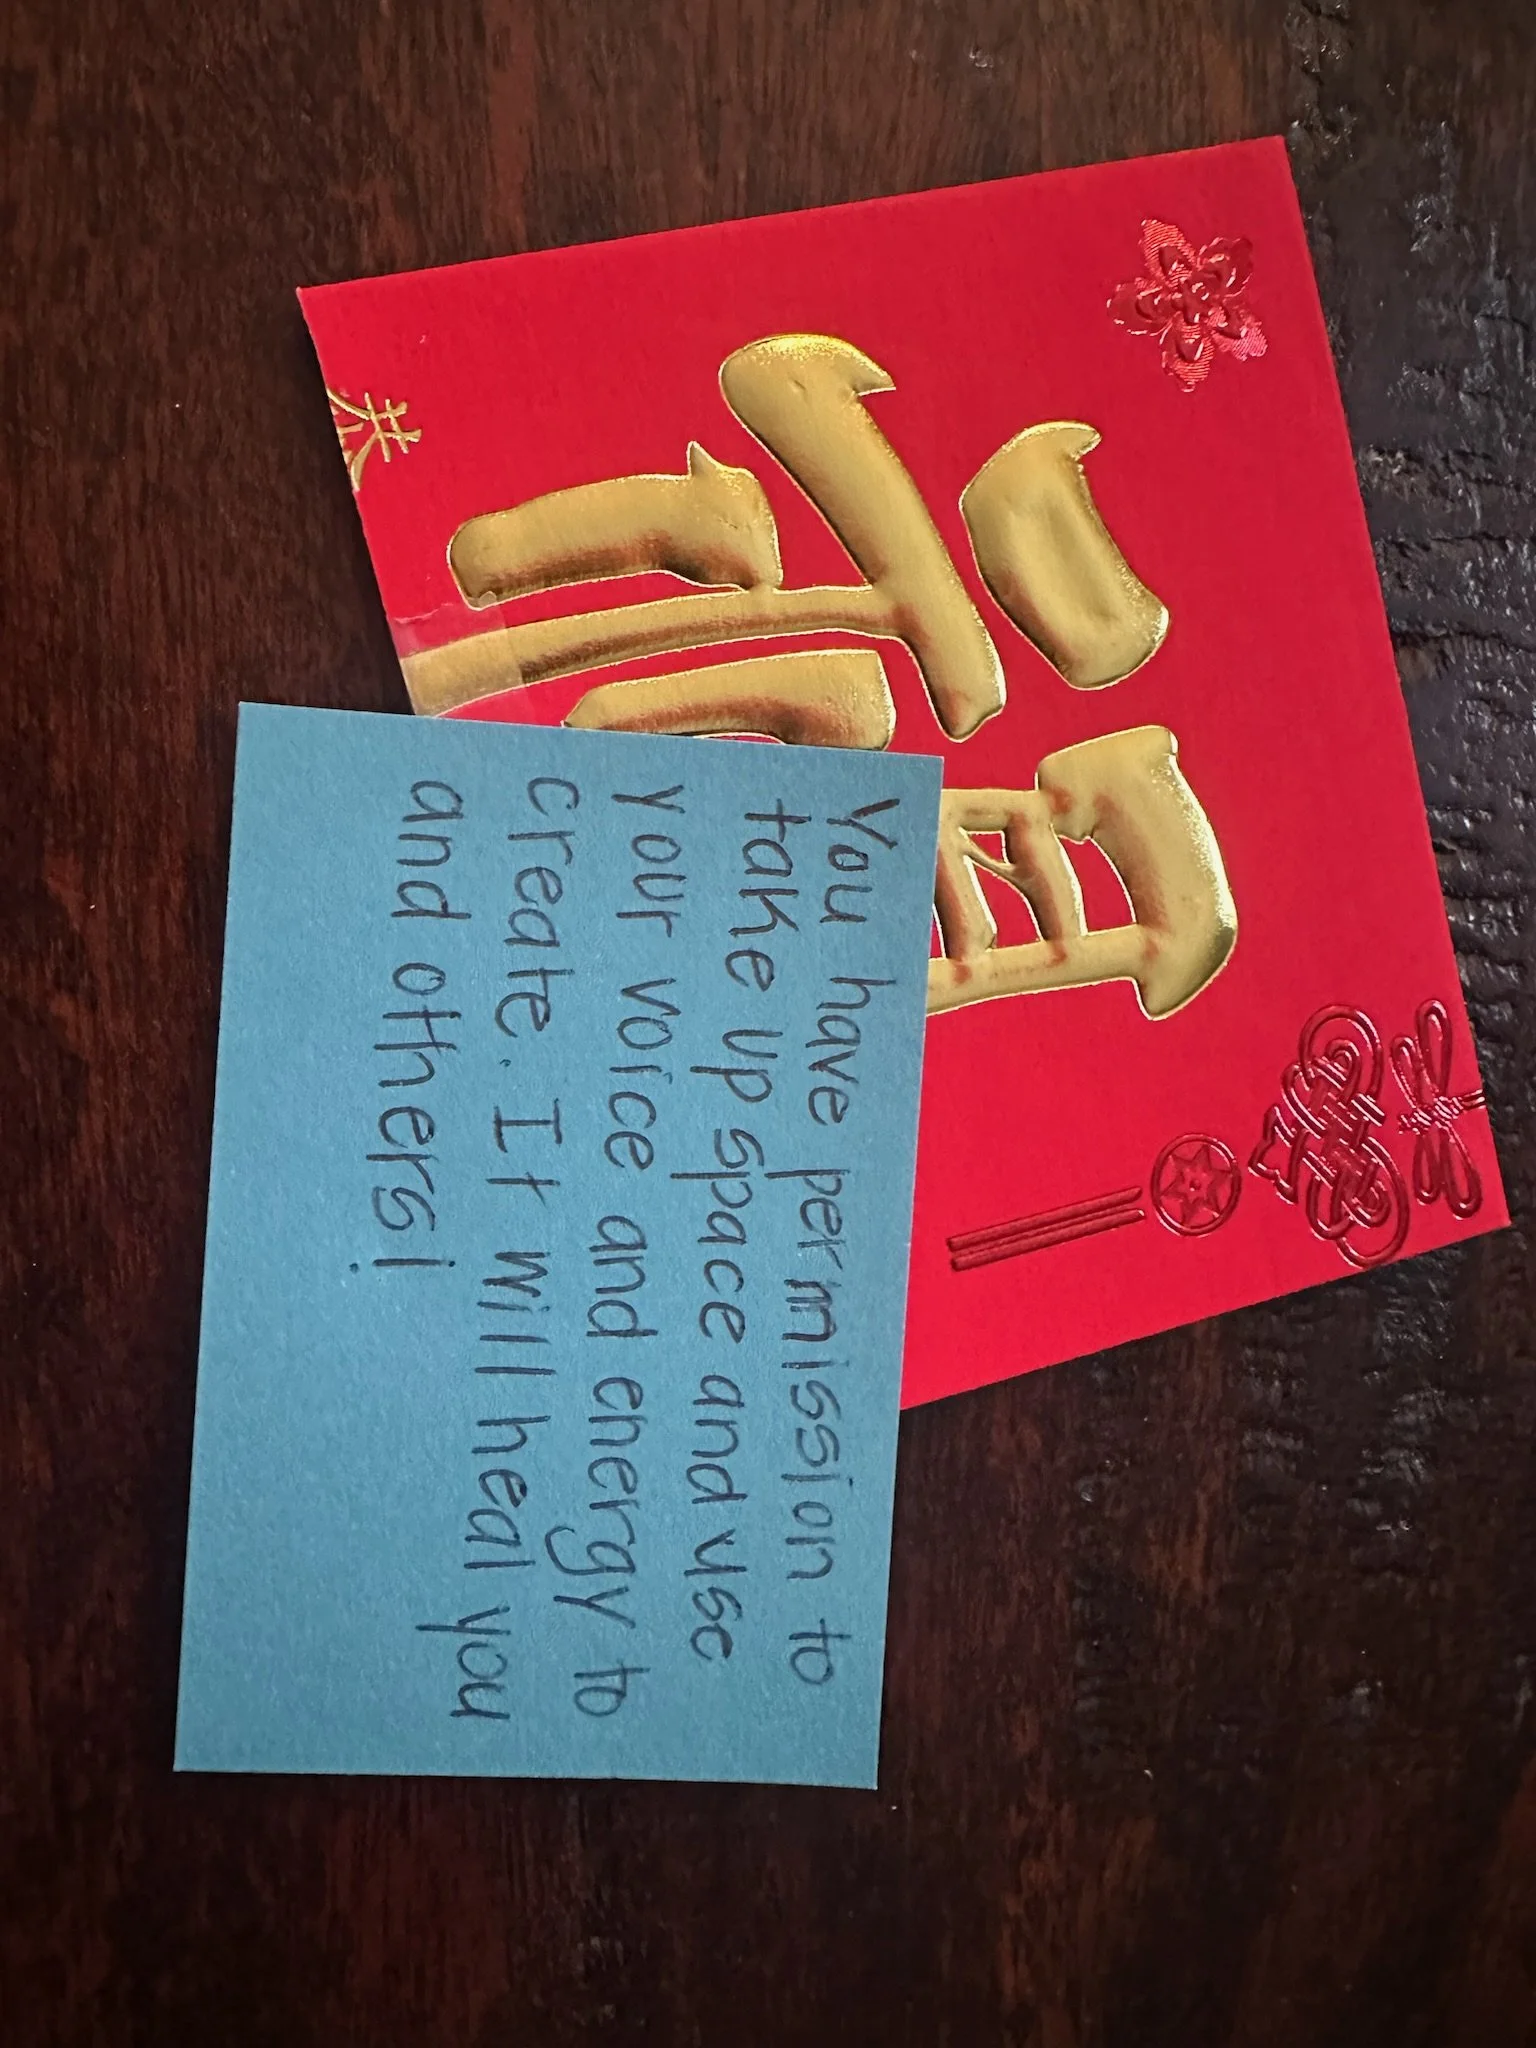 福
You have permission to
take up space and use
your voice and energy to
create. It will heal you
and others!